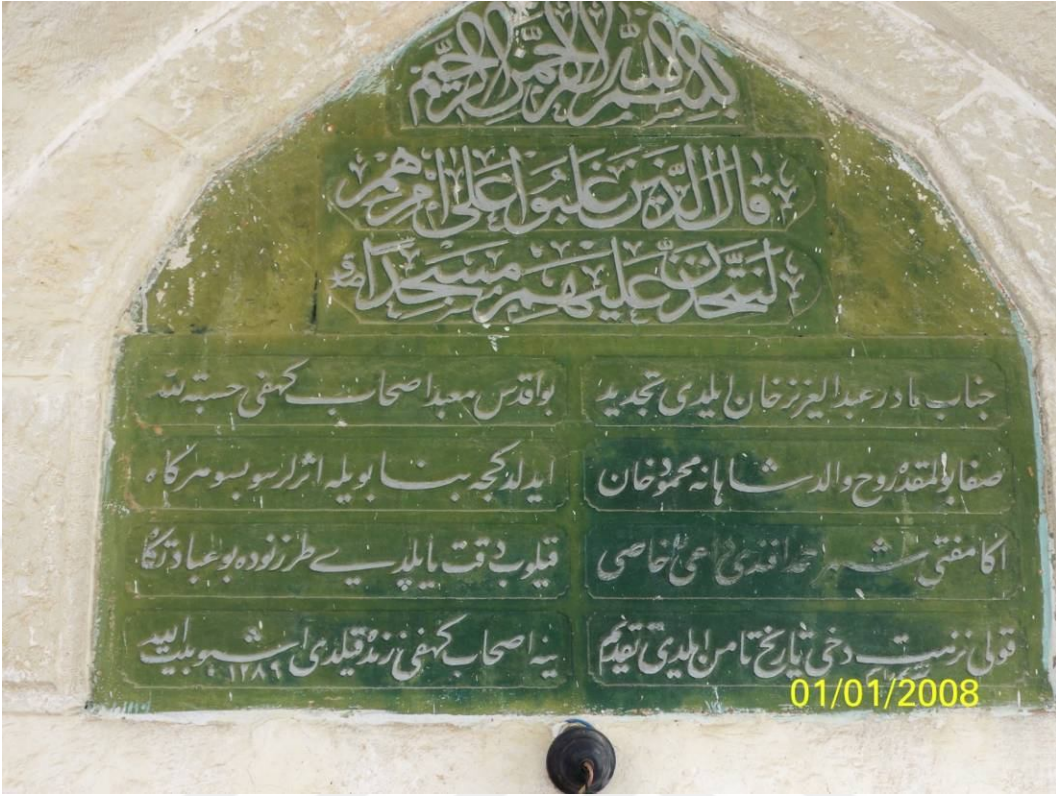 بسم الله الرحمن الرحيم
قال الذين غلبوا على امرهم
لنتخذن عليهم مسجدا
جناب مادر عبد العزيز خان ايلدى تجديد
بو اقدس معبد اصحاب كهفى حسبة لله
صفا بولمقده روح والد شاهانه محمود خان
ايدلدكجه بنا بويله اثرلر سو بسو هر كاه
اكا مفتى شهر احمد افندى داعئ خاصى
قيلوب دقت ياپلدى طرز نوده بو عبادتكاه
قولى نزهت دخى تاريخ تامن ايلدى تقديم
ينه اصحاب كهفى زنده قيلدى اشبو بيت الله
١٢٨٩
01/01/2008